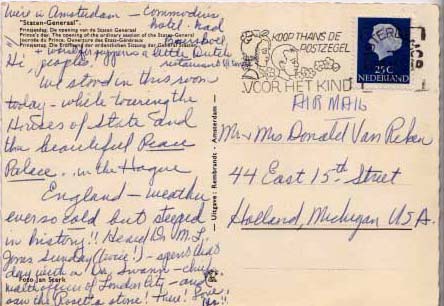 Were in Amsterdam Commodius
hotel - had
"Staaten-Generaal".
Prinsjesdag. De opening van de Staten Generaal
Prince's day. The opening of the ordinary session of the States-General
Journée du Prince. Ouverture des États-Généraux
Prinsjesdag. Die Eröffnung der ordentlichen Sitzung der General Staaten
+ a little Dutch
restaurant
Hi, peoples!
We stood in this room
today - while touring the
Houses of State and
the beautiful Peace
Palace.. in the Hague
England - weather
ever so cold but steeped
in history!! Heard Dr. M. L.
Jones Sunday (twice!) - spent that
day with a Dr. Swann - chief
health officer of London City - and
saw the Rosetta stone! True! True!
Foto Jan Stark
Uitgave: Rembrandt - Amsterdam
KOOP THANS DE
POSTZEGEL
VOOR HET KIND
25 C
NEDERLAND
AIR MAIL
Mr & Mrs Donald Van Reken
44 East 15th Street
Holland, Michigan U.S.A.